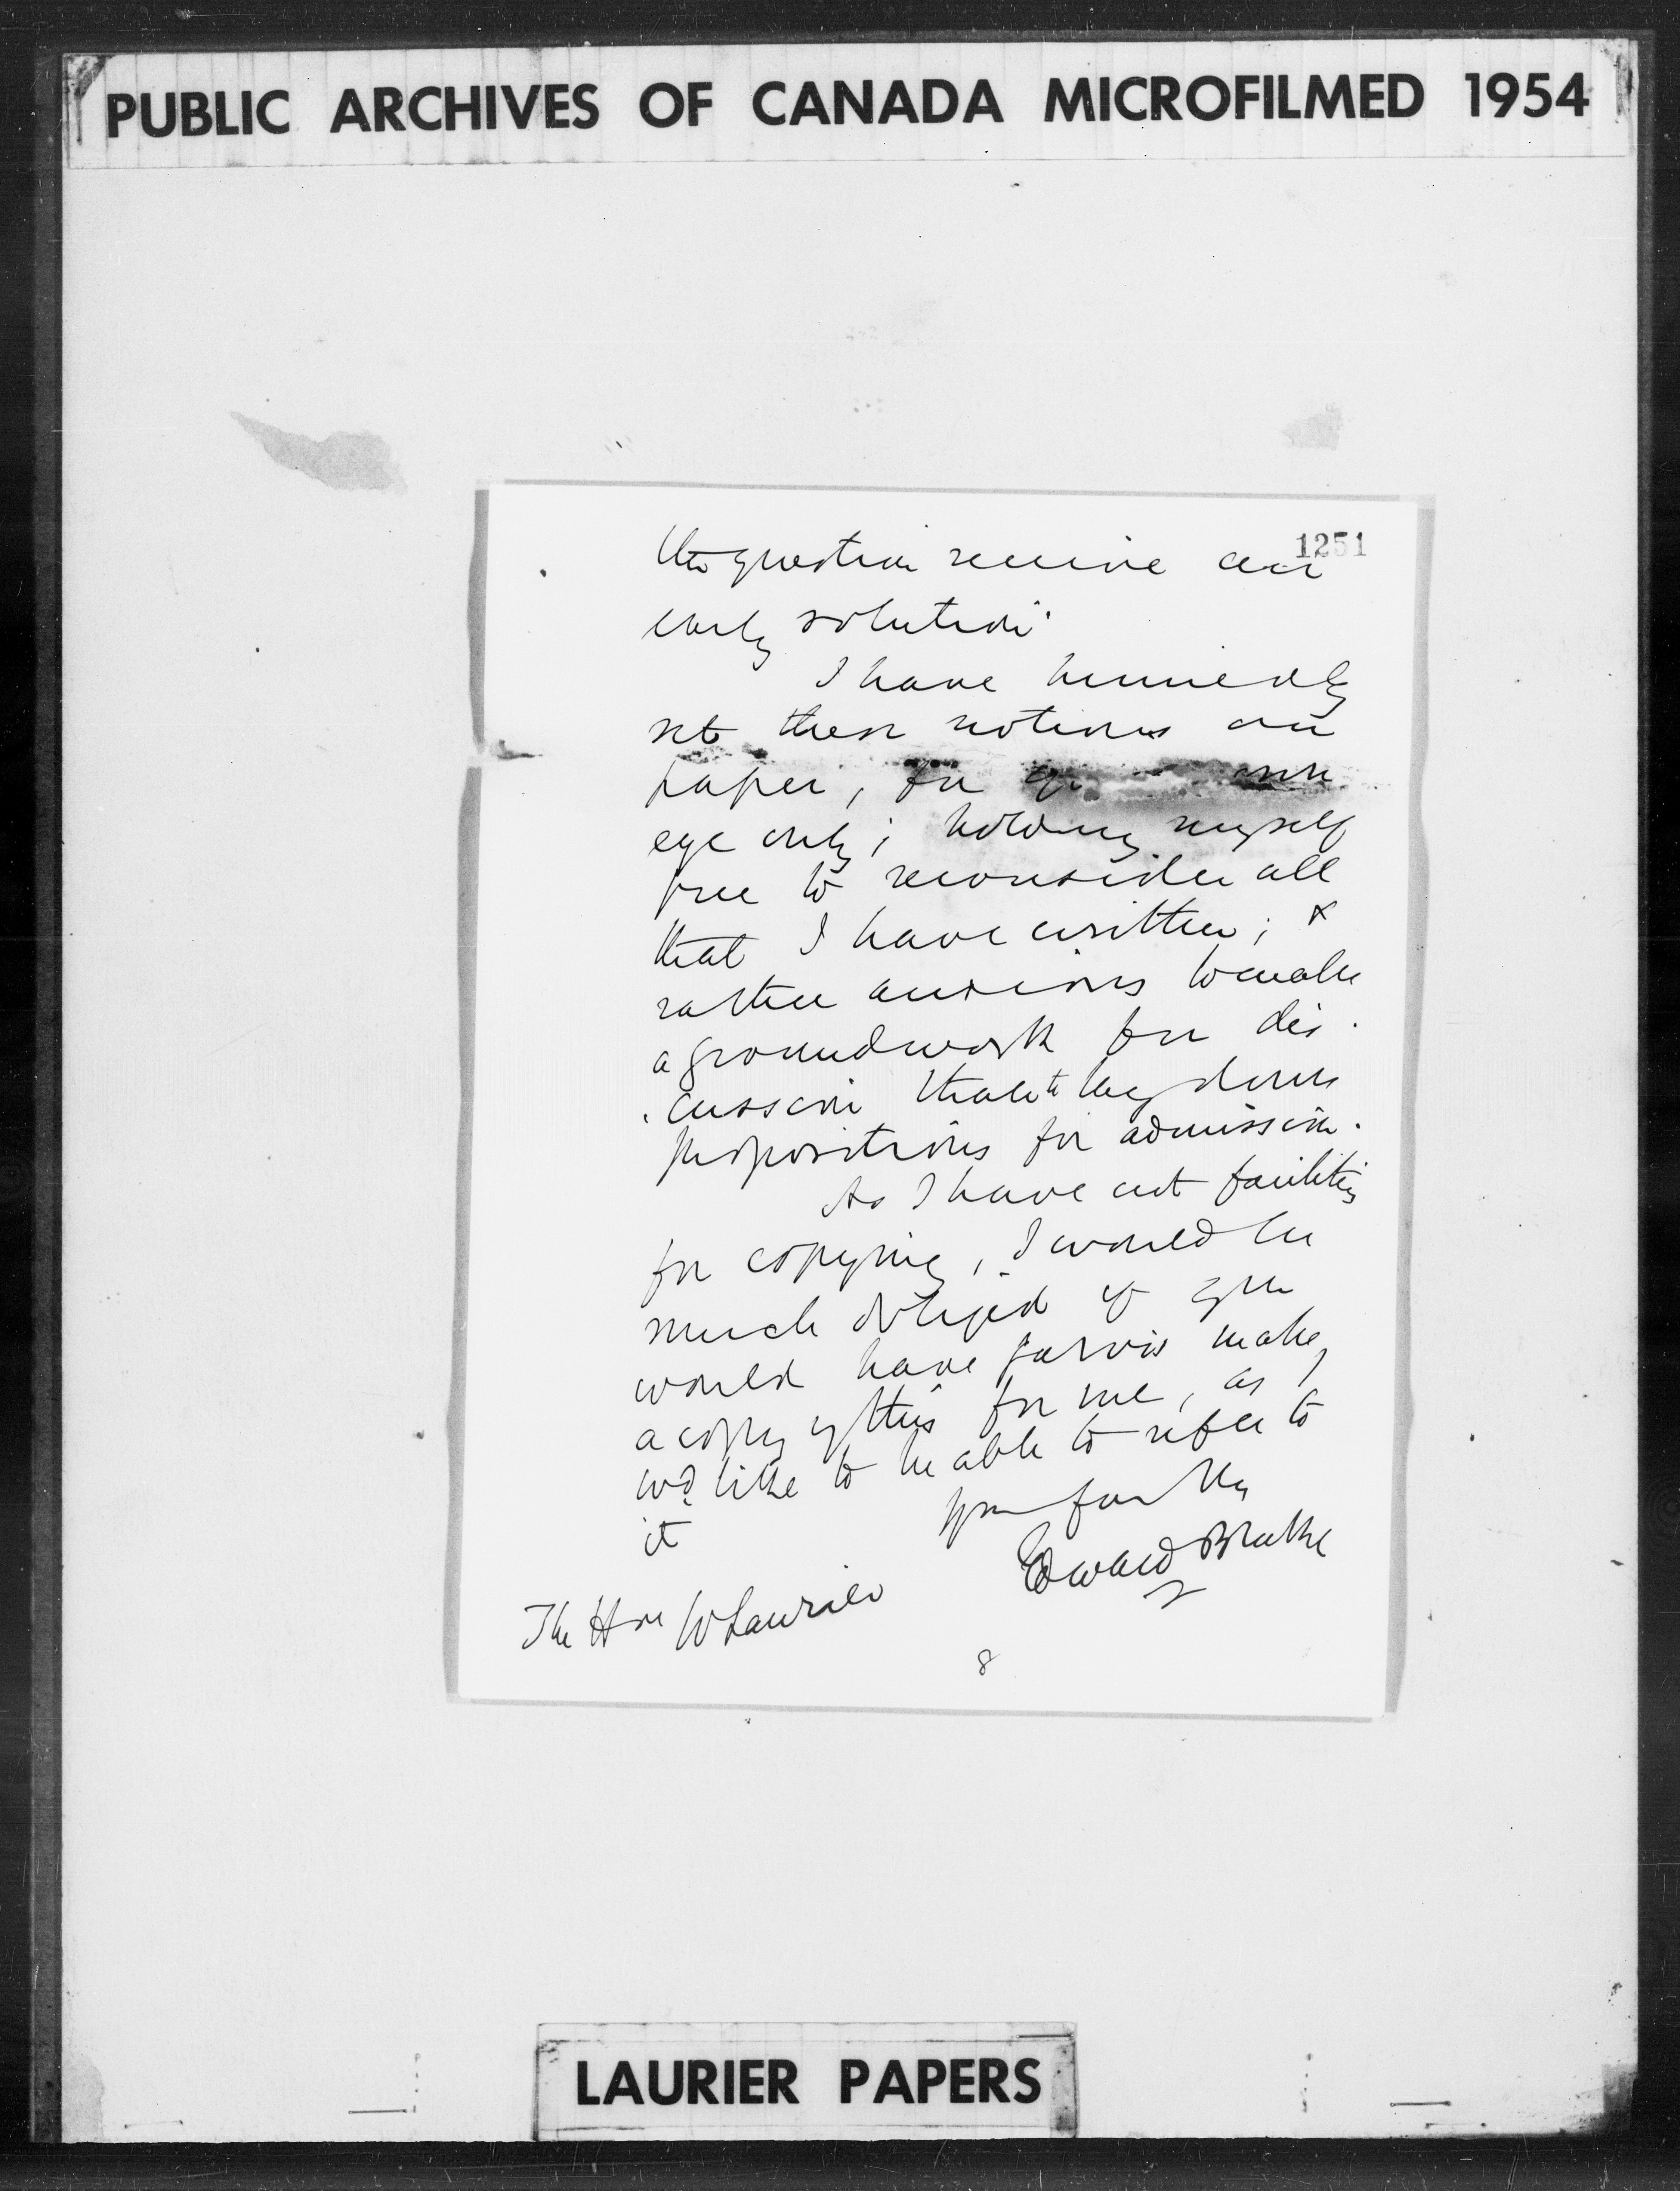 PUBLIC ARCHIVES OF CANADA MICROFILMED 1954
1251
the question receive an
early solution.
I have hurriedly
set these notions on
paper, for your own
eye only; holding myself
free to reconsider all
that I have written; &
rather anxious to make
a groundwork for dis-
cussion than to lay down
propositions for admission.
As I have not facilities
for copying, I would be
much obliged if you
would have Jarvis make
a copy of this for me, as I
wd. like to be able to refer to
it
Yours faithfully
Edward Blake
The Hon W Laurier
8
LAURIER PAPERS